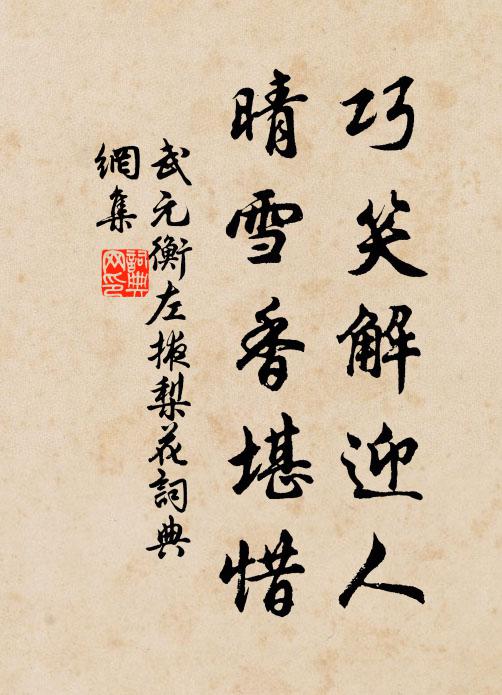 巧笑解迎人
晴雪香堪惜
武元衡左掖梨花詞典
網集
詞典网印